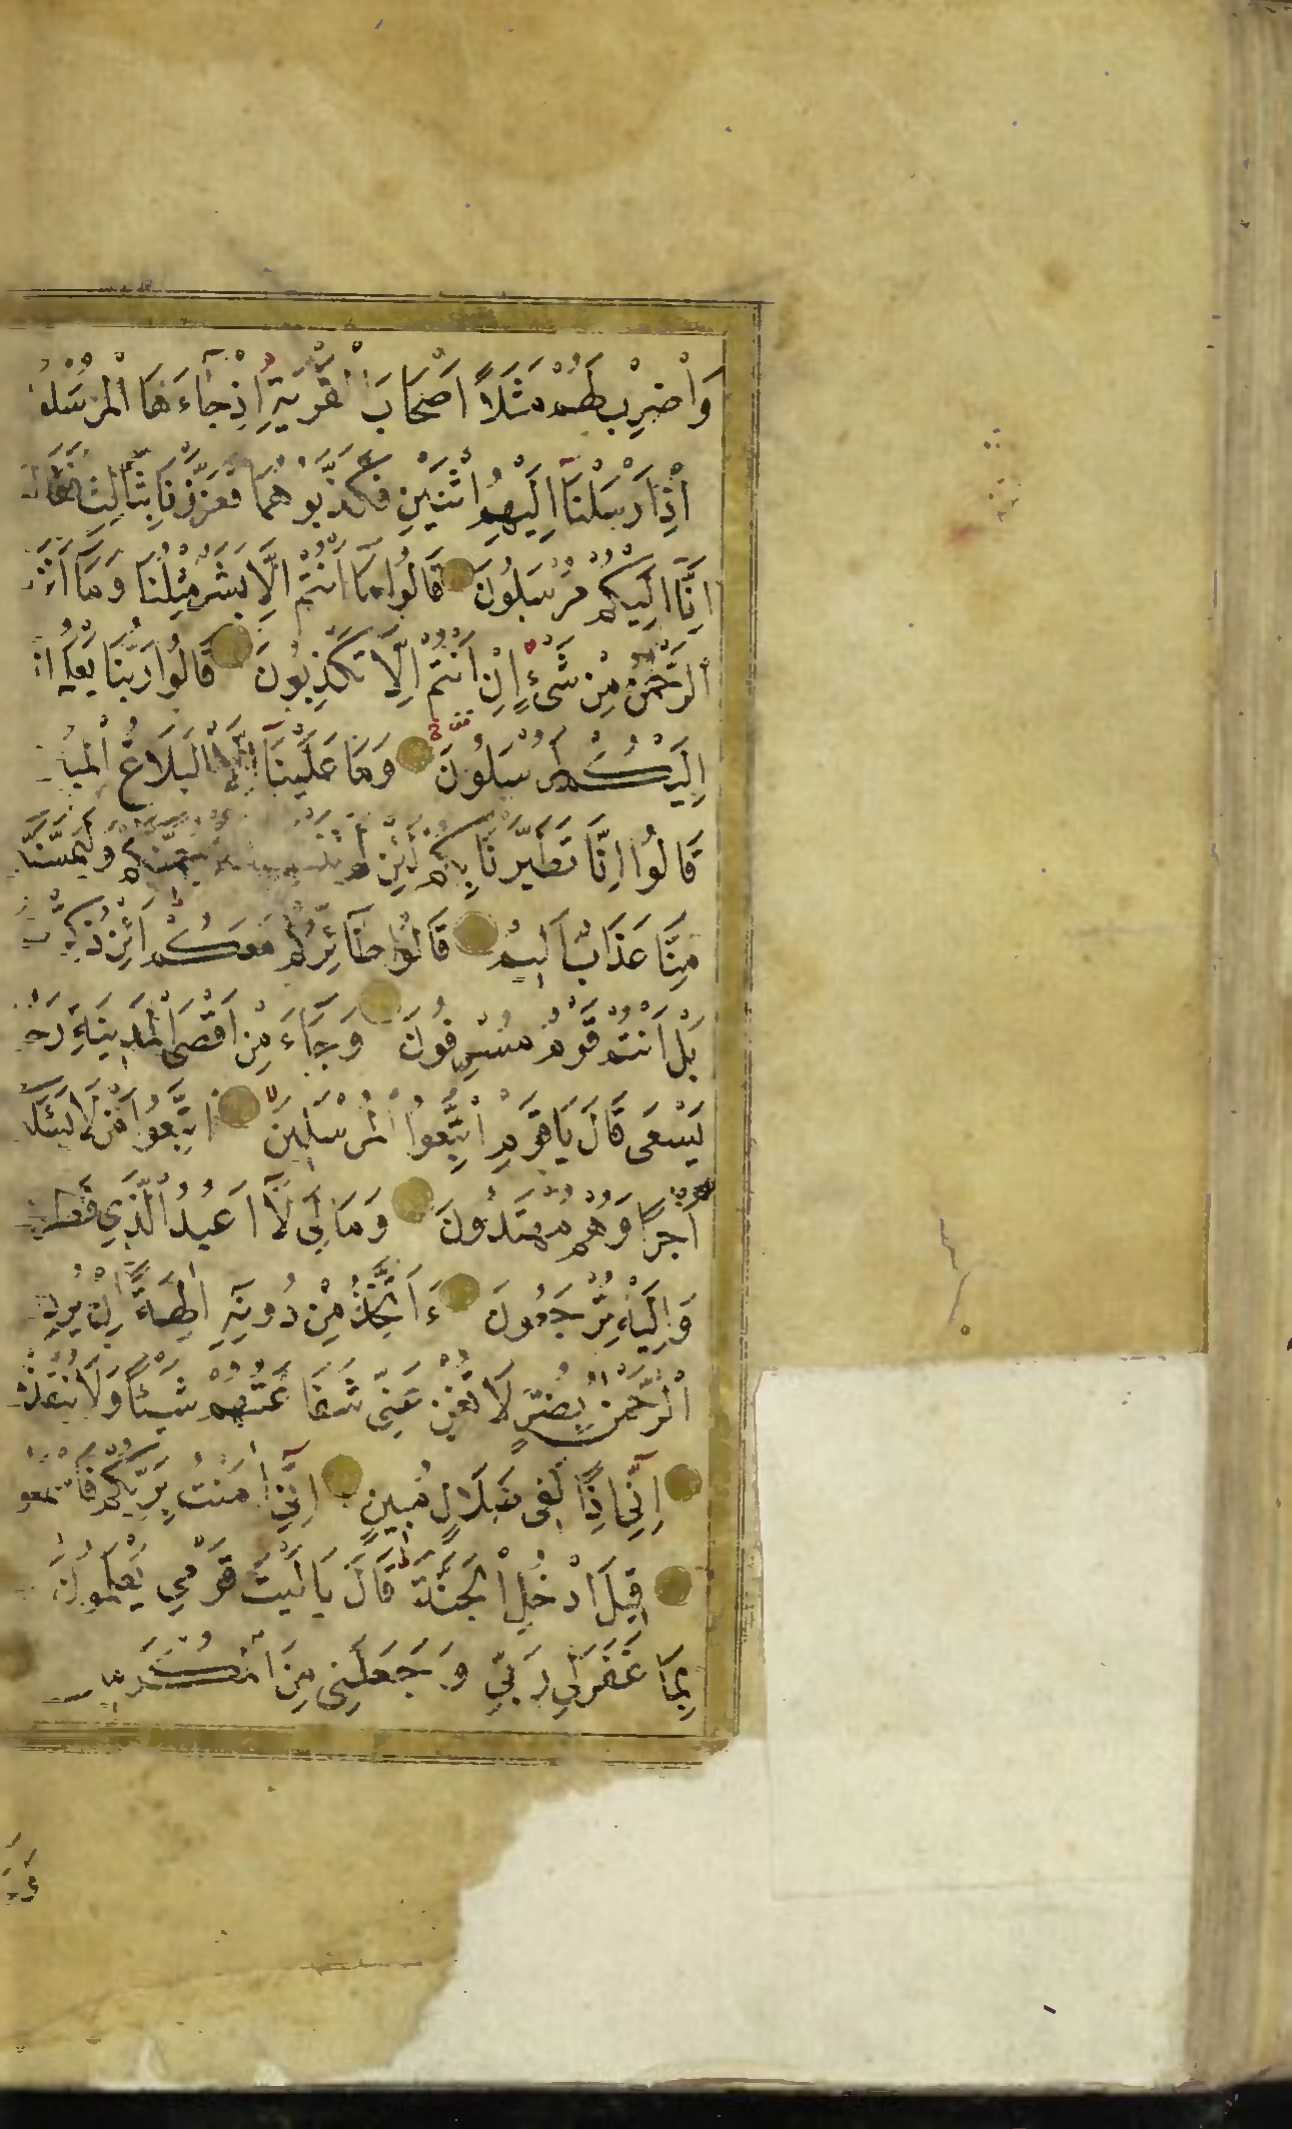 وَاضْرِبْ لَهُمْ مَثَلًا اَصْحَابَ الْقَرْيَةِ اِذْ جَآءَهَا الْمُرْسَلُو
اِذْ اَرْسَلْنَآ اِلَيْهِمُ اثْنَيْنِ فَكَذَّبُوهُمَا فَعَزَّزْنَا بِثَالِثٍ فَقَالُ
اِنَّا اِلَيْكُمْ مُرْسَلُونَ قَالُوا مَا اَنْتُمْ اِلَّا بَشَرٌ مِثْلُنَا وَمَا اَنْزَ
الرَّحْمٰنُ مِنْ شَىْءٍ اِنْ اَنْتُمْ اِلَّا تَكْذِبُونَ قَالُوا رَبُّنَا يَعْلَمُ اِنَّ
اِلَيْكُمْ لَمُرْسَلُونَ وَمَا عَلَيْنَآ اِلَّا الْبَلَاغُ الْمُبِ
قَالُوا اِنَّا تَطَيَّرْنَا بِكُمْ لَئِنْ لَمْ تَنْتَهُوا وَلَيَمَسَّنَّ
مِنَّا عَذَابٌ اَلِيمٌ قَالُوا طَآئِرُكُمْ مَعَكُمْ اَئِنْ ذُكِّرْ
بَلْ اَنْتُمْ قَوْمٌ مُسْرِفُونَ وَجَآءَ مِنْ اَقْصَى الْمَدِينَةِ رَجُ
يَسْعَى قَالَ يَا قَوْمِ اتَّبِعُوا الْمُرْسَلِينَ اتَّبِعُوا مَنْ لَا يَسْئَلُ
اَجْرًا وَهُمْ مُهْتَدُونَ وَمَا لِيَ لَآ اَعْبُدُ الَّذِي فَطَرَ
وَاِلَيْهِ تُرْجَعُونَ ءَاَتَّخِذُ مِنْ دُونِهِٓ اٰلِهَةً اِنْ يُرِدْ
الرَّحْمٰنُ بِضُرٍّ لَا تُغْنِ عَنِّي شَفَاعَتُهُمْ شَيْئًا وَلَا يُنْقِذُ
اِنِّٓي اِذًا لَفِى ضَلَالٍ مُبِينٍ اِنِّٓي اٰمَنْتُ بِرَبِّكُمْ فَاسْمَعُو
قِيلَ ادْخُلِ الْجَنَّةَ قَالَ يَا لَيْتَ قَوْمِي يَعْلَمُونَ
بِمَا غَفَرَ لِي رَبِّي وَجَعَلَنِى مِنَ الْمُكْرَمِينَ